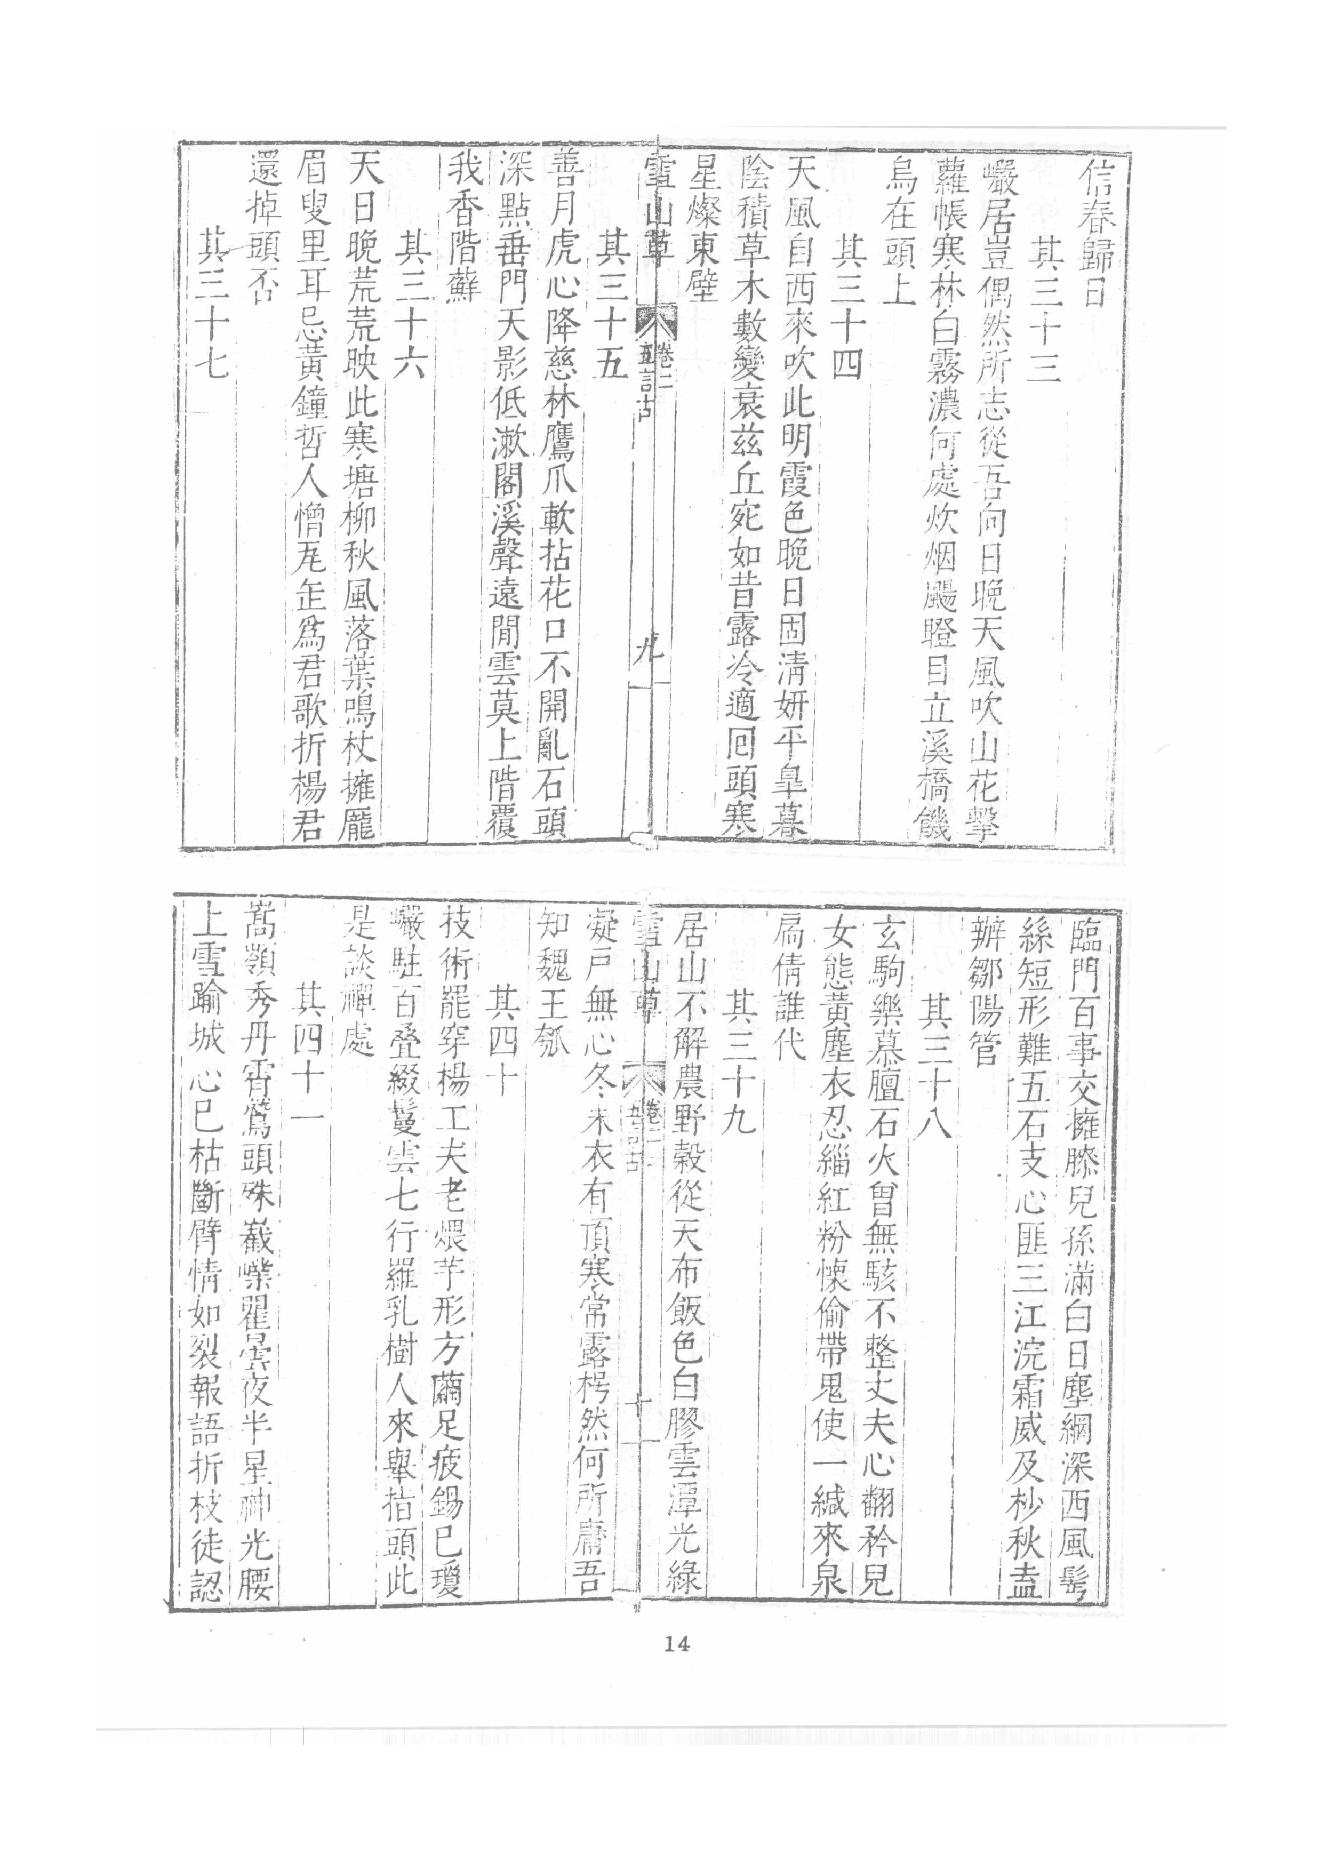 信春歸日
其三十三
巖居豈偶然所志從吾向日晚天風吹山花擊
蘿帳寒林白霧濃何處炊烟颺瞪目立溪橋饑
烏在頭上
其三十四
天風自西來吹此明霞色晚日固淸妍平臯暮
陰積草木數變衰兹丘宛如昔露冷適囘頭寒
星燦東壁
雪山草
卷二
五言古
九
其三十五
善月虎心降慈林鷹爪軟拈花口不開亂石頭
深點垂門天影低漱閣溪聲遠閒雲莫上階覆
我香階蘚
其三十六
天日晚荒荒映此寒塘柳秋風落葉鳴杖擁龎
眉叟里耳忌黃鐘哲人憎瓦缶爲君歌折楊君
還掉頭否
其三十七
臨門百事交擁膝兒孫滿白日塵網深西風髩
絲短形難五石支心匪三江浣霜威及杪秋盍
辦鄒陽管
其三十八
玄駒樂慕膻石火曾無駭不整丈夫心翻矜兒
女態黃塵衣忍緇紅粉悚偷帶鬼使一緘來泉
扃倩誰代
其三十九
居山不解農野穀從天布飯色白膠雲潭光綠
雪山草
卷二
五言古
十
凝戸無心冬未衣有頂寒常露枵然何所庸吾
知魏王瓠
其四十
技術罷穿楊工夫老煨芋形方繭足疲錫已瓊
巖駐百叠綴鬘雲七行羅乳樹人來舉指頭此
是談禪處
其四十一
嵩嶺秀丹霄鷲頭殊嶻嶪瞿曇夜半星神光腰
上雪踰城心已枯斷臂情如裂報語折枝徒認
14